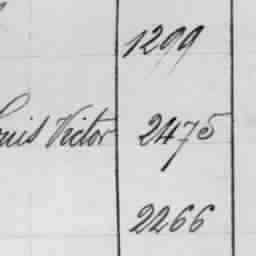 1299
Louis Victor 2475
2266